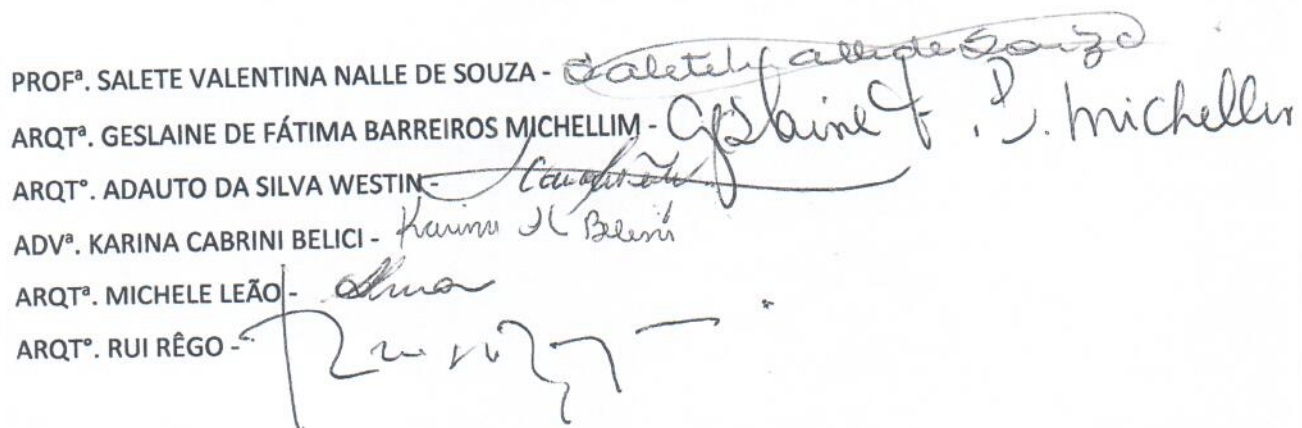 PROFª. SALETE VALENTINA NALLE DE SOUZA - Salete V Nalle de Souza
ARQTª. GESLAINE DE FÁTIMA BARREIROS MICHELLIM - Geslaine F. B. Michellim
ARQT°. ADAUTO DA SILVA WESTIN -
ADVª. KARINA CABRINI BELICI - Karina C Belici
ARQTª. MICHELE LEÃO -
ARQT°. RUI RÊGO -